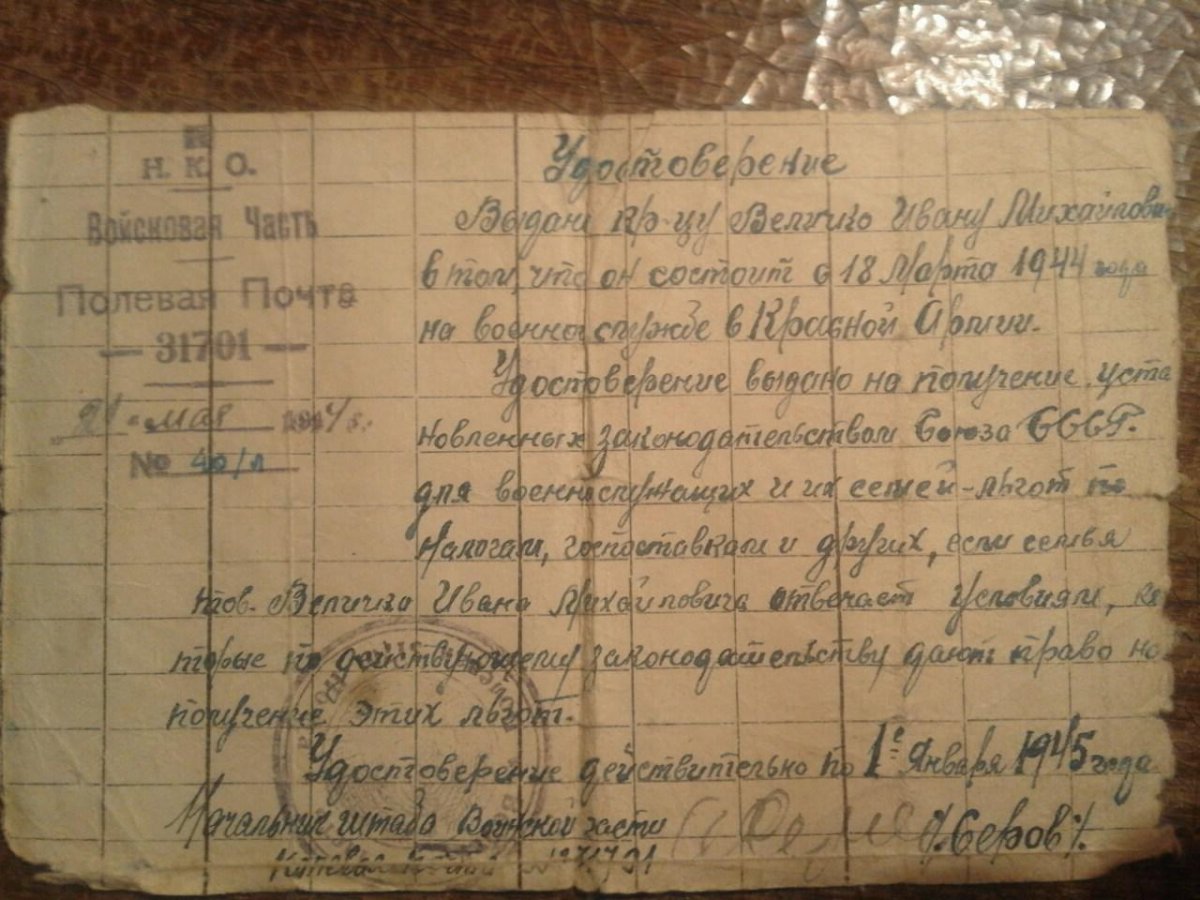 Н. К. О.
Войсковая Часть
Полевая Почта
— 31701 —
"21" мая 1944 г.
№ 40/л
Удостоверение
Выдано кр-цу Величко Ивану Михайлови-
в том, что он состоит с 18 Марта 1944 года
на военной службе в Красной Армии.
Удостоверение выдано на получение уста
новленных законодательством Союза СССР.
для военнослужащих и их семей - льгот по
налогам, госпоставкам и других, если семья
тов. Величко Ивана Михайловича отвечает условиям, ко
торые по действующему законодательству дают право на
получение этих льгот.
Удостоверение действительно по 1е Января 1945 года
Начальник штаба Воинской части
/. Серов /.